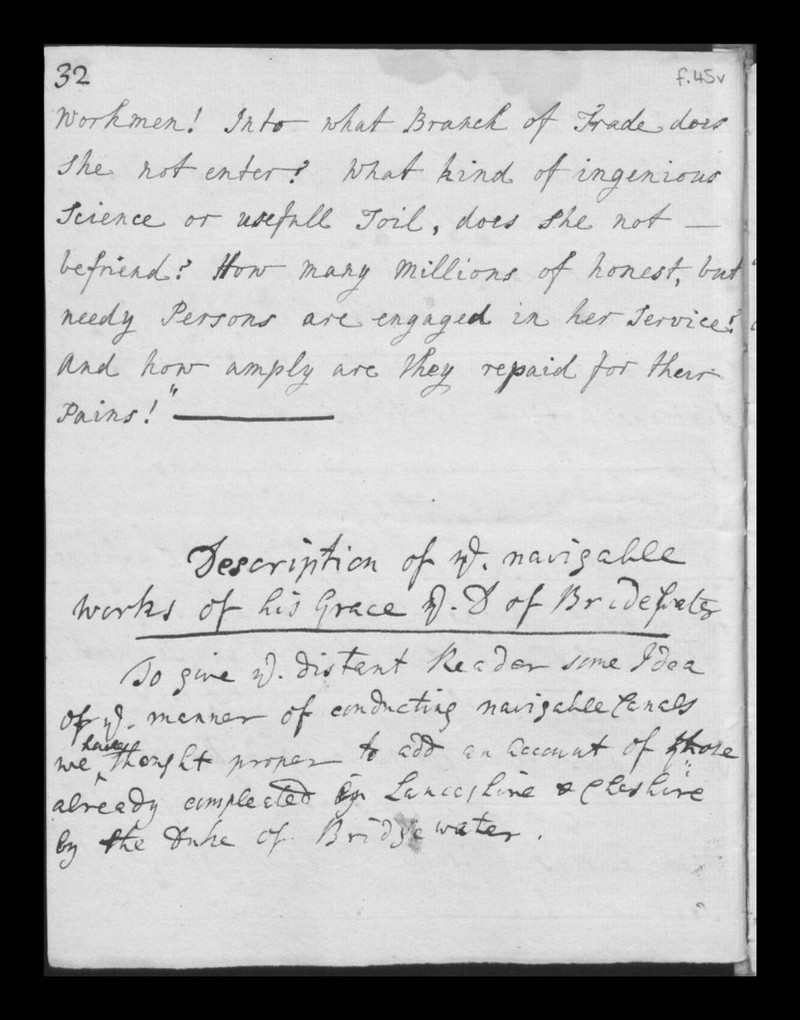 32
f.45v
Workmen! Into what Branch of Trade does
she not enter? What kind of ingenious
Science or usefull Toil, does she not —
befriend? How many Millions of honest, but
needy Persons are engaged in her Service?
And how amply are they repaid for their
Pains!" ———
Description of ye. navigable
works of his Grace ye. D of Bridgewater
To give ye. distant Reader some Idea
of ye. manner of conducting navigable Canals
have
we ^ thought proper to add an account of those
already compleated in Lancashire & Cheshire
by the Duke of Bridgewater.